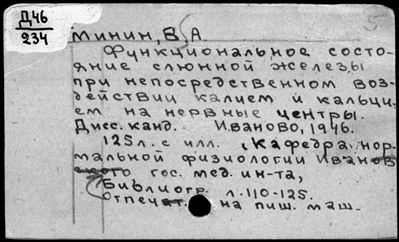 Д46
234
5
Минин, В. А.
Функциональное состо-
яние слюнной железы
при непосредственном воз-
действии калием и кальци-
ем на нервные центры.
Дисс. канд. Иваново, 1946.
125 л. с илл. (Кафедра нор-
мальной физиологии Иванов-
ского гос. мед. ин-та,
Библиогр. л. 110-125.
Отпечат. на пиш. маш.